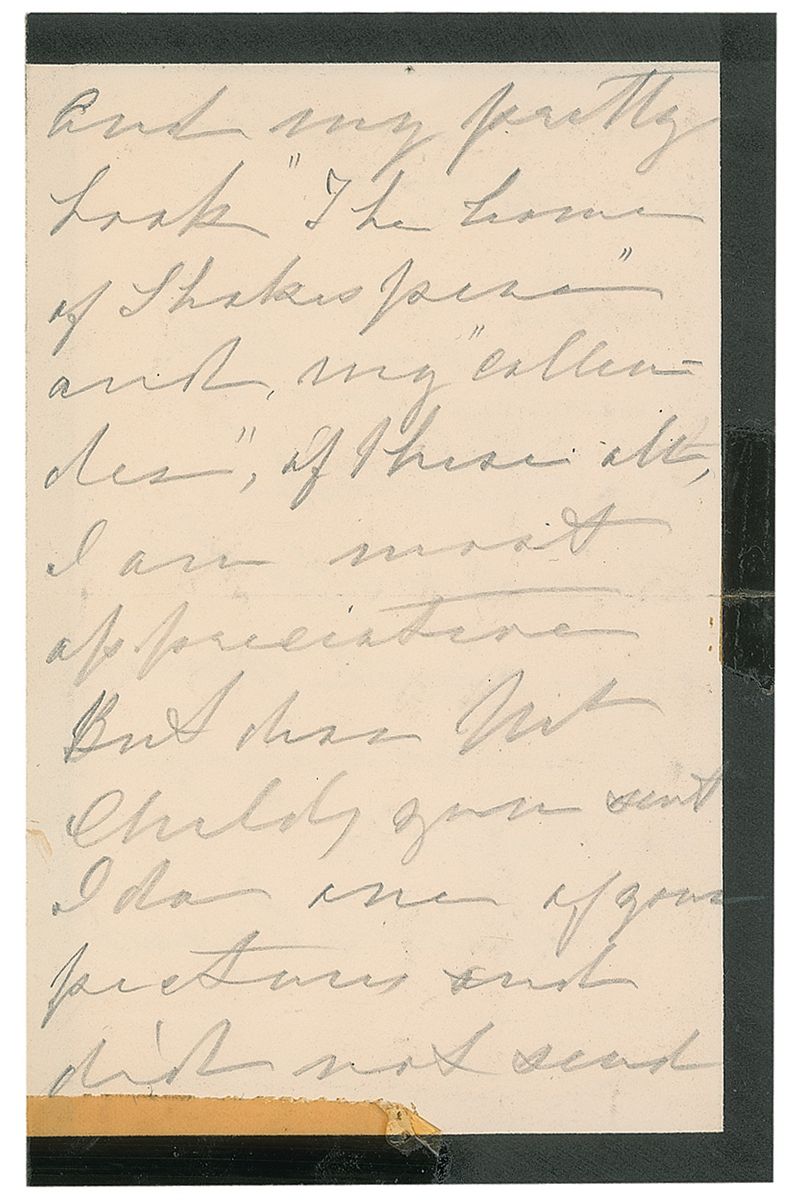 and my pretty
book "The home
of Shakespeare"
and, my "callen-
der", of these all,
I am most
appreciative
But dear Mr
Childs, you sent
Ida one of your
pictures and
did not send